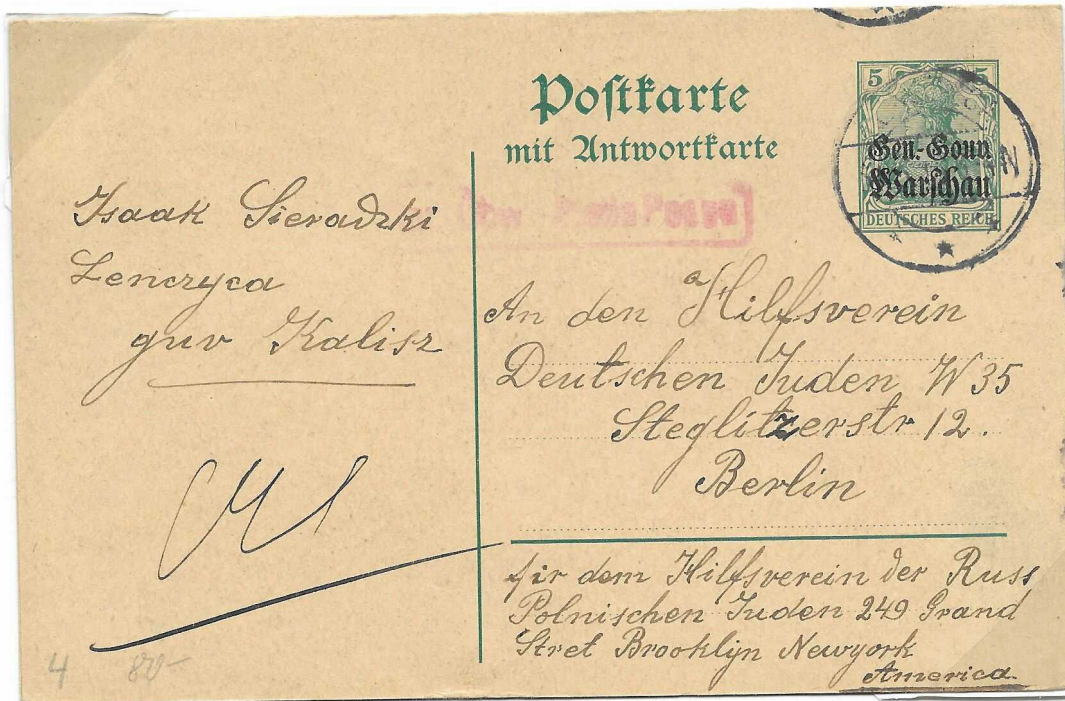 Postkarte
mit Antwortkarte
5 5
Gen.-Gouv.
Warschau
DEUTSCHES REICH
Isaak Sieradzki
Lenczyca
guv Kalisz
An den Hilfsverein
Deutschen Juden W 35
Steglitzerstr 12.
Berlin
fir dem Hilfsverein der Russ
Polnischen Juden 249 Grand
Stret Brooklijn Newyork
America
4 80-